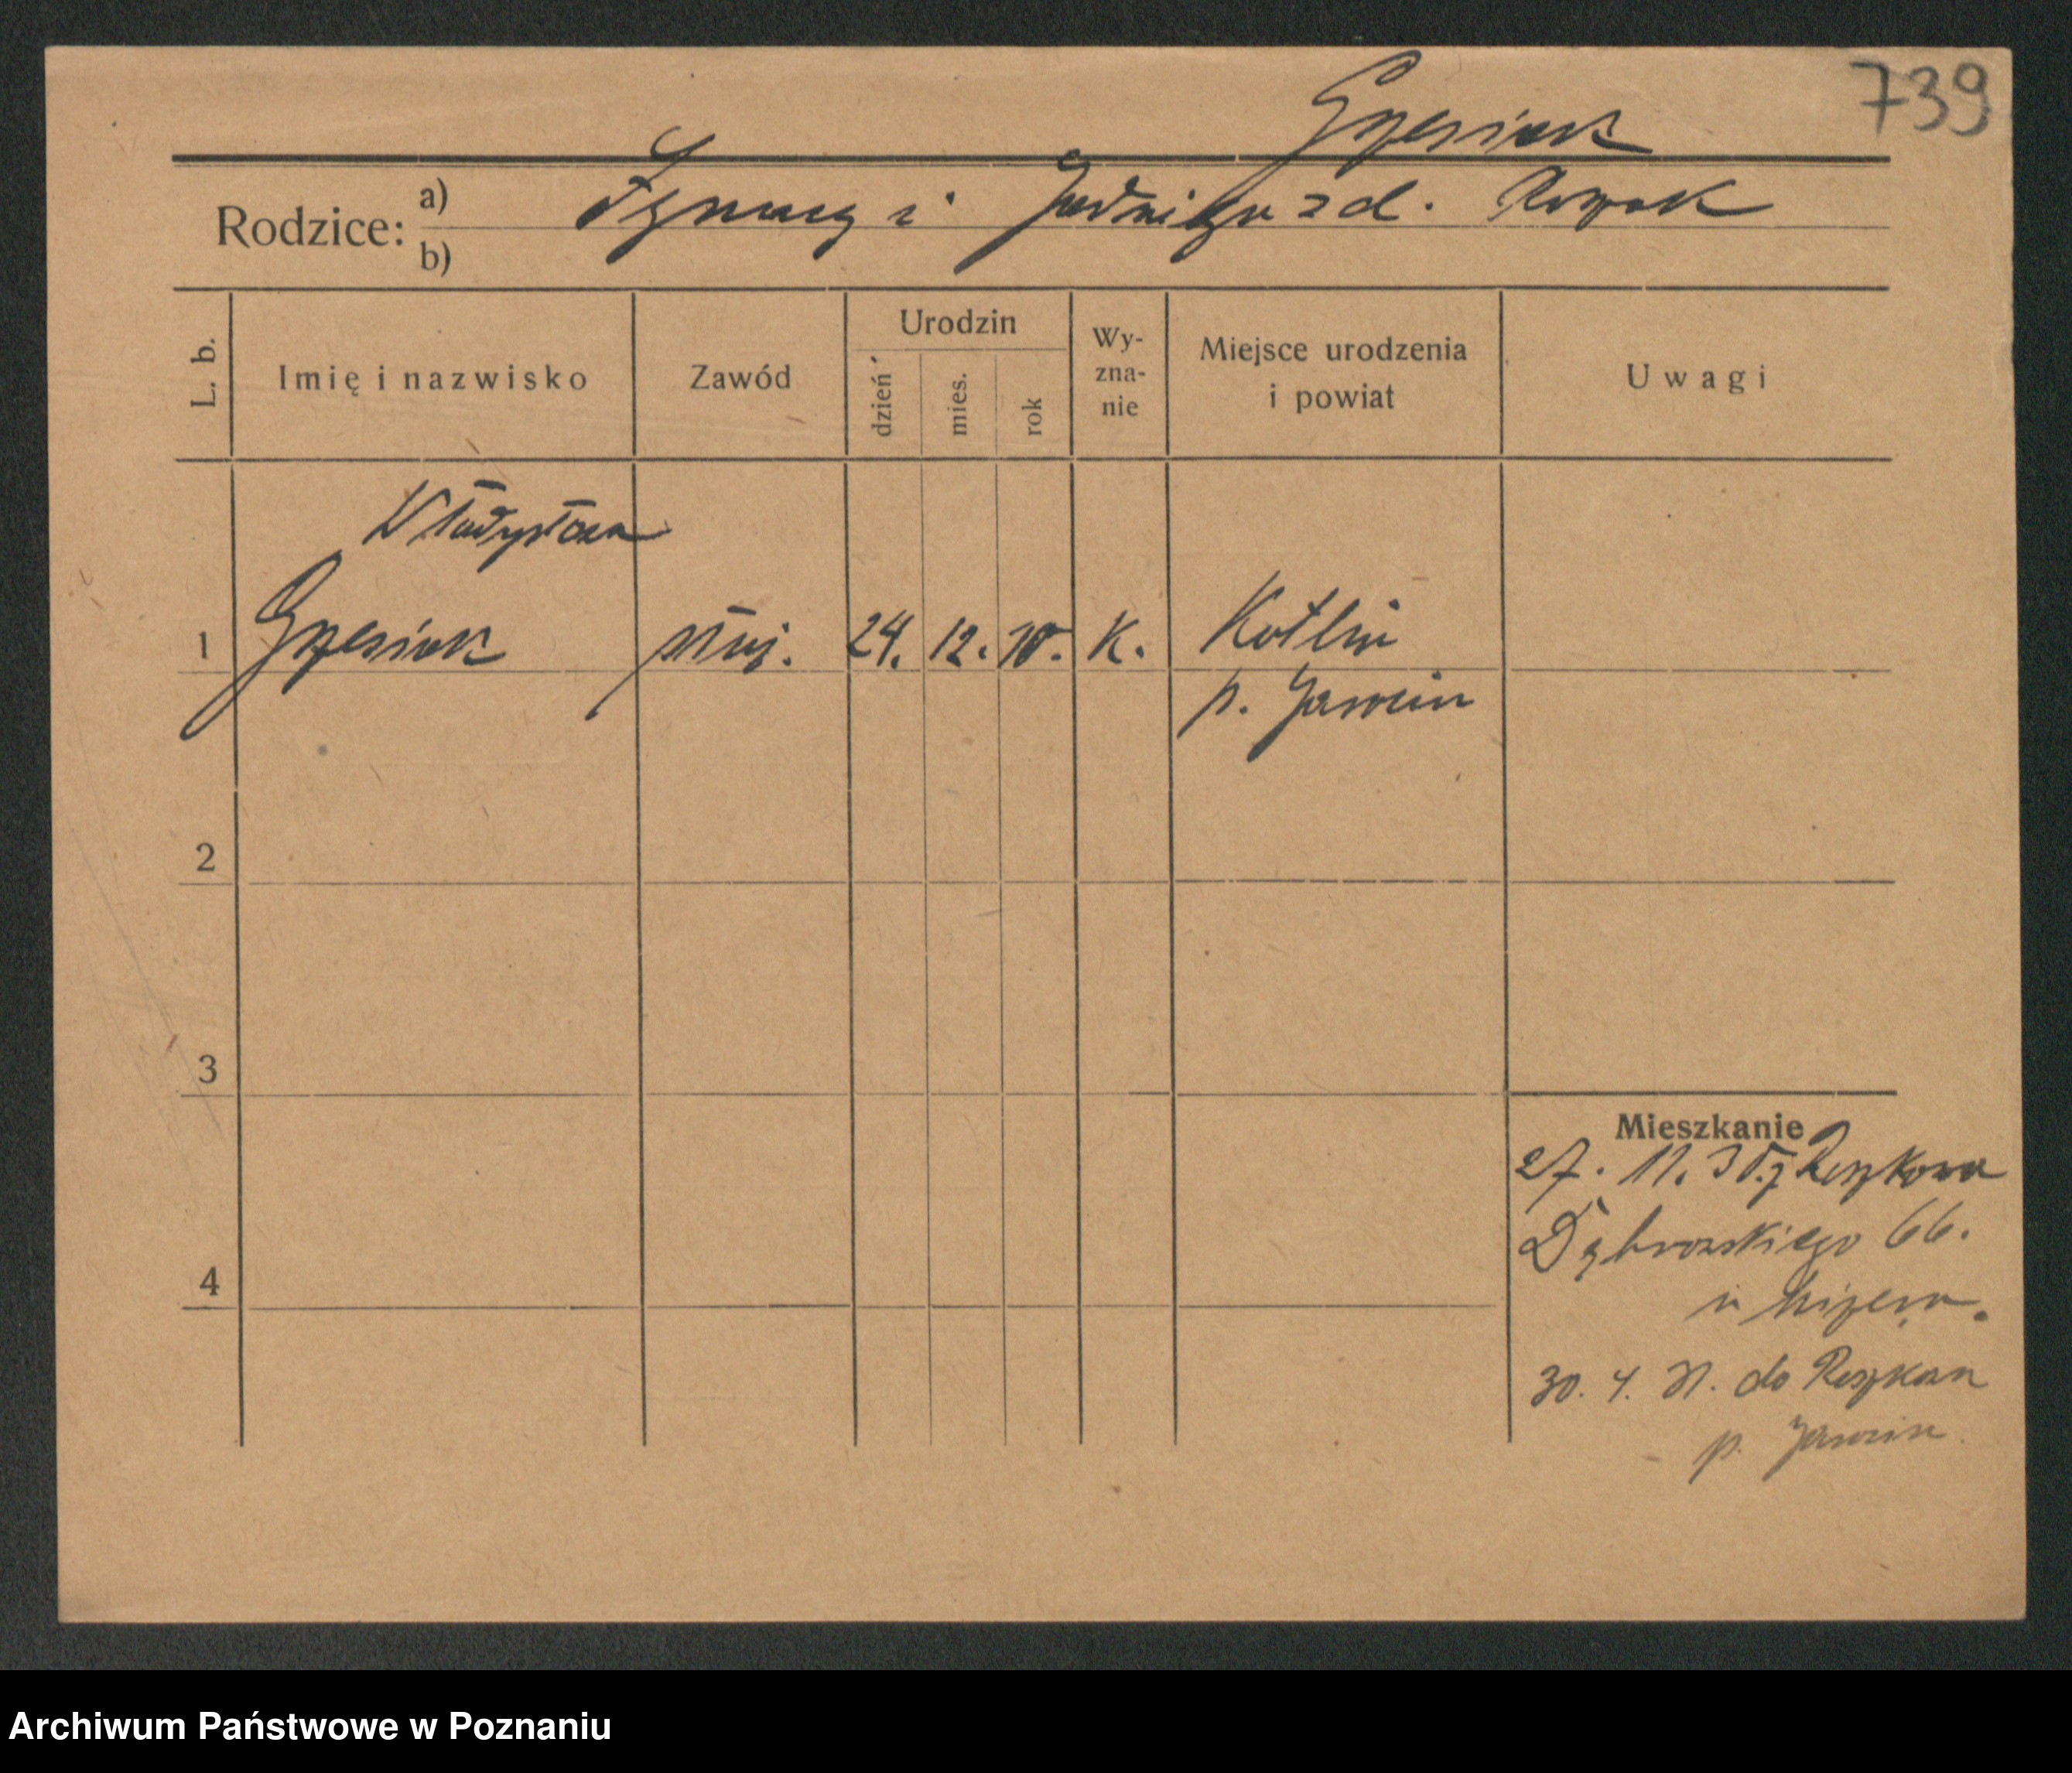 739
Grzesiak
Rodzice: a) Ignacy i Jadwiga zd. Nowak
b)
L. b.
Imię i nazwisko
Zawód
Urodzin
dzień
mies.
rok
Wy-
zna-
nie
Miejsce urodzenia
i powiat
Uwagi
Władysława
1 Grzesiak służ. 24. 12. 10. K. Kotlin
p. Jarocin
2
3
4
Mieszkanie
27. 11. 30. z
Dąbrowskiego 66.
u
30. 4. 31. do
p. Jarocin
Archiwum Państwowe w Poznaniu